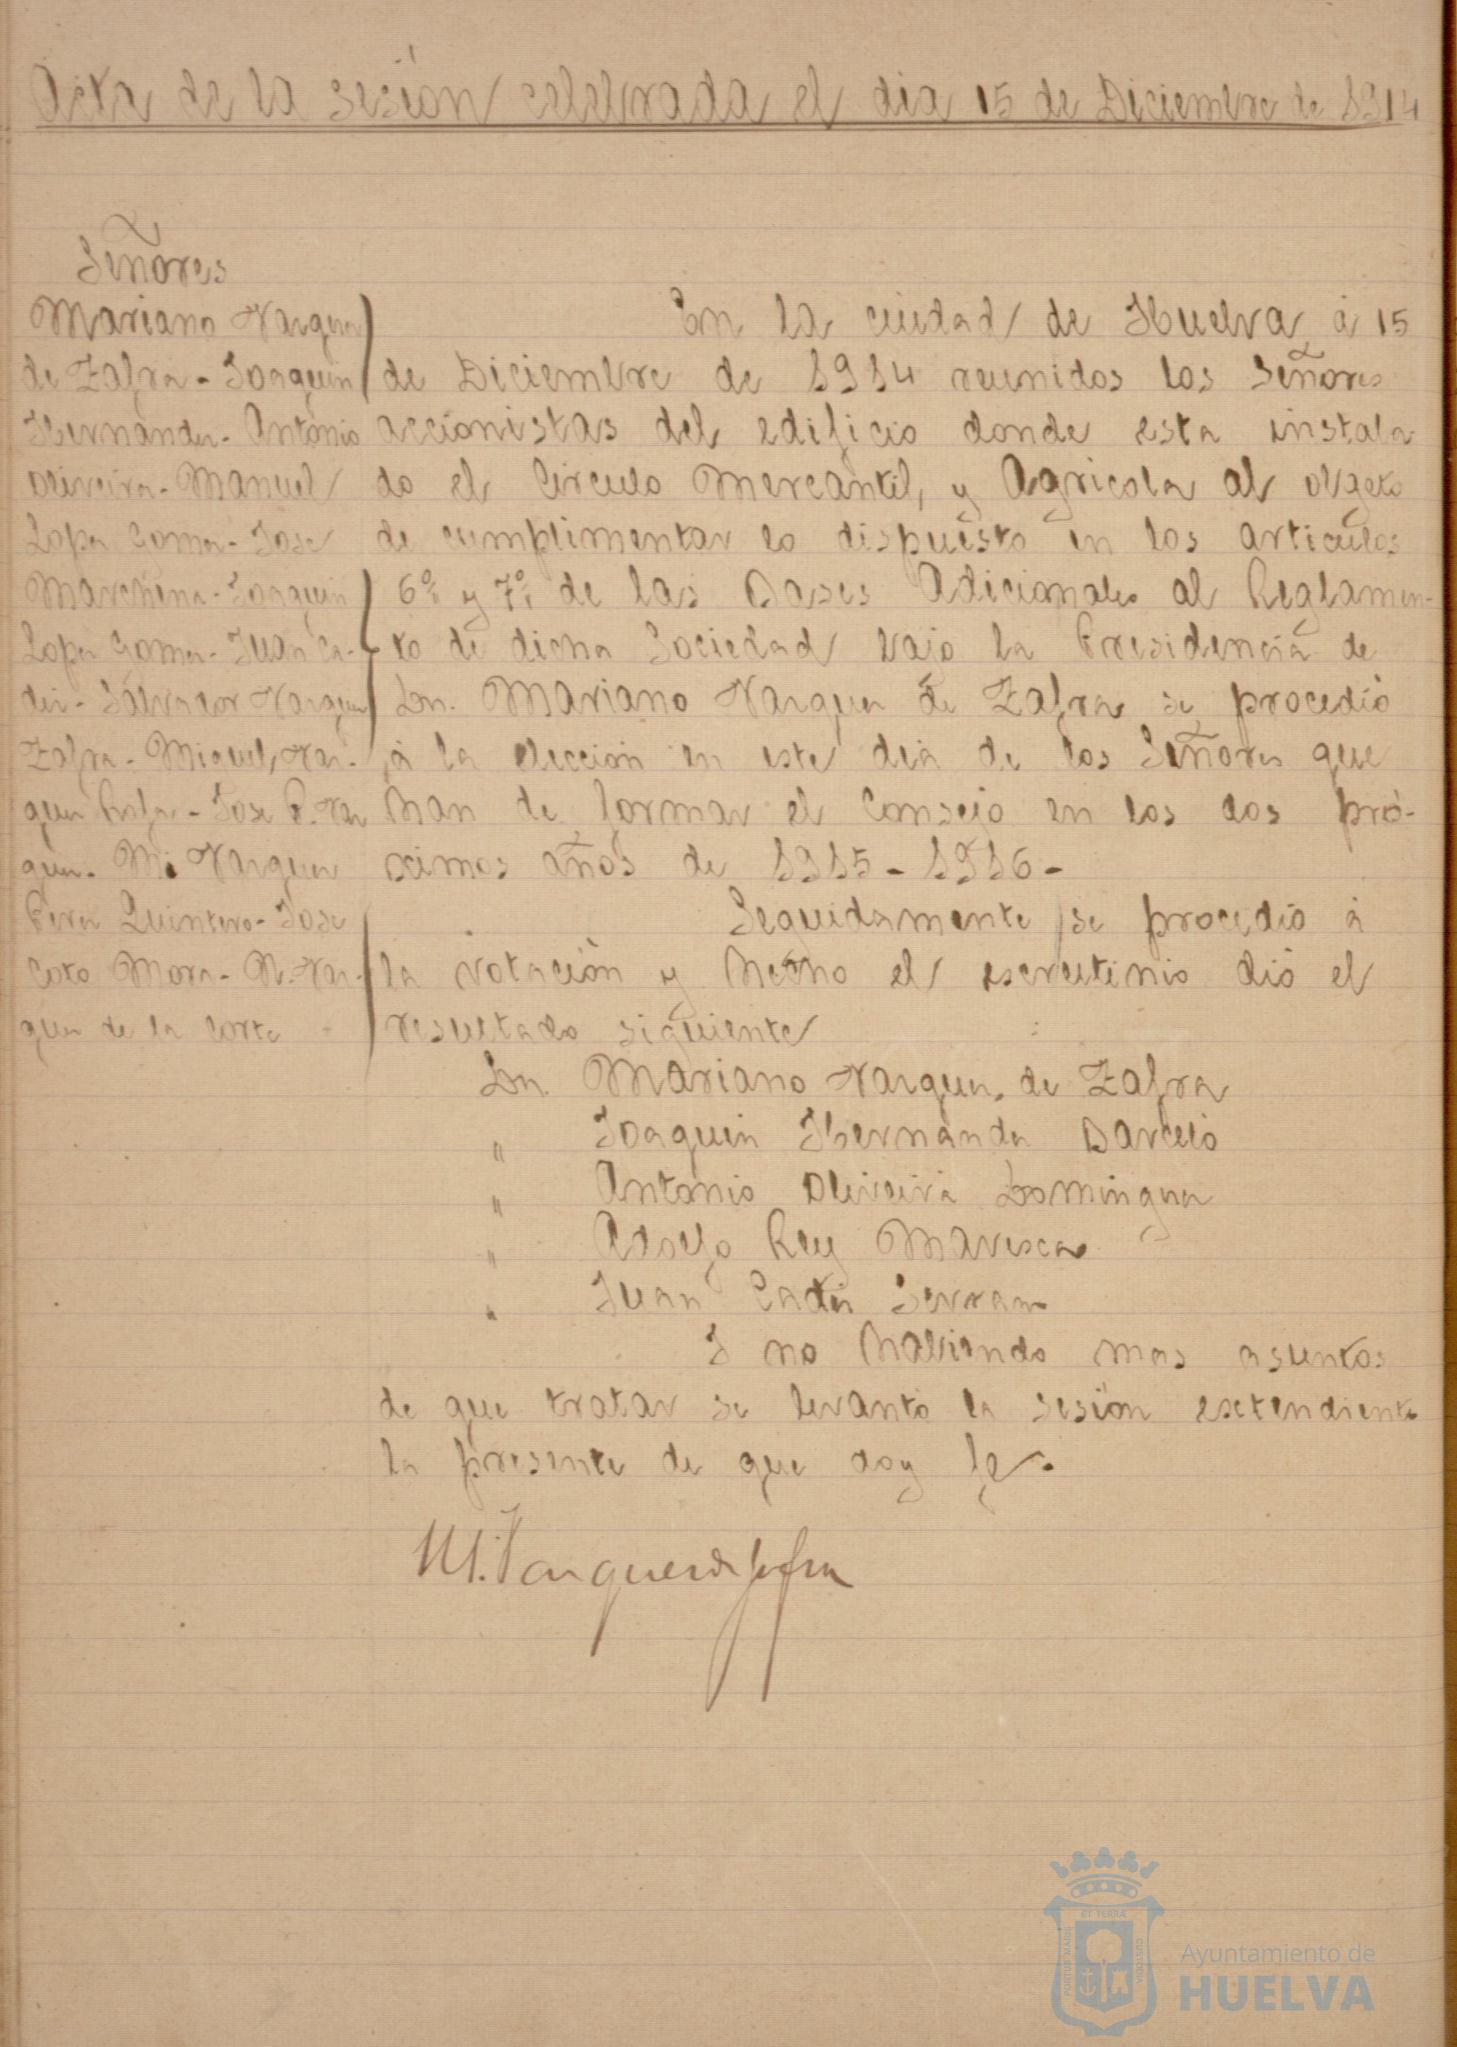 Acta de la sesión celebrada el dia 15 de Diciembre de 1914
Señores
Mariano Vazquez
de Zafra - Joaquin
Hernandez - Antonio
Oliveira - Manuel
Lopez Gomez - Jose
Marchena - Joaquin
Lopez Gomez - Juan Ca-
diz - Salvador Vazquez
Zafra - Miguel Vaz-
quez - Jose P. Vaz
quez - M. Vazquez
Perez Quintero - Jose
Coto Mora - N. Vaz-
quez de la Corte
En la ciudad de Huelva á 15
de Diciembre de 1914 reunidos los Señores
accionistas del edificio donde esta instala
do el Circulo Mercantil, y Agricola al obgeto
de cumplimentar lo dispuesto en los articulos
6º y 7º de las Bases Adicionales al Reglamen-
to de dicha Sociedad bajo la Presidencia de
Dn. Mariano Vazquez de Zafra se procedió
á la elección en este dia de los Señores que
han de formar el Consejo en los dos pró-
ximos años de 1915 - 1916 -
Seguidamente se procedió á
la votación y hecho el escrutinio dió el
resultado siguiente
Dn. Mariano Vazquez de Zafra
" Joaquin Hernandez Barceló
" Antonio Oliveira Dominguez
" Adolfo Rey Mavesca
" Juan Cadiz Serrano
I no habiendo mas asuntos
de que tratar se levantó la sesión extendiendo
la presente de que doy fe.
M. Vazquez de Zafra
ET TERRÆ
PORTUS MARIS
CUSTODIA
Ayuntamiento de
HUELVA